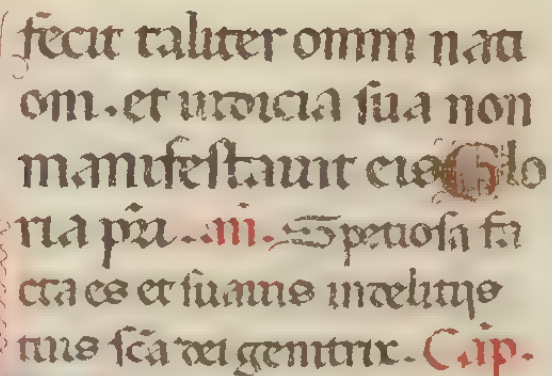 fecit taliter omni nati
oni. et iudicia sua non
manifestauit eis Glo
ria pri. añ. Spetiosa fa
cta es et suauis in delitijs
tuis sc̃a dei genitrix. Cap.